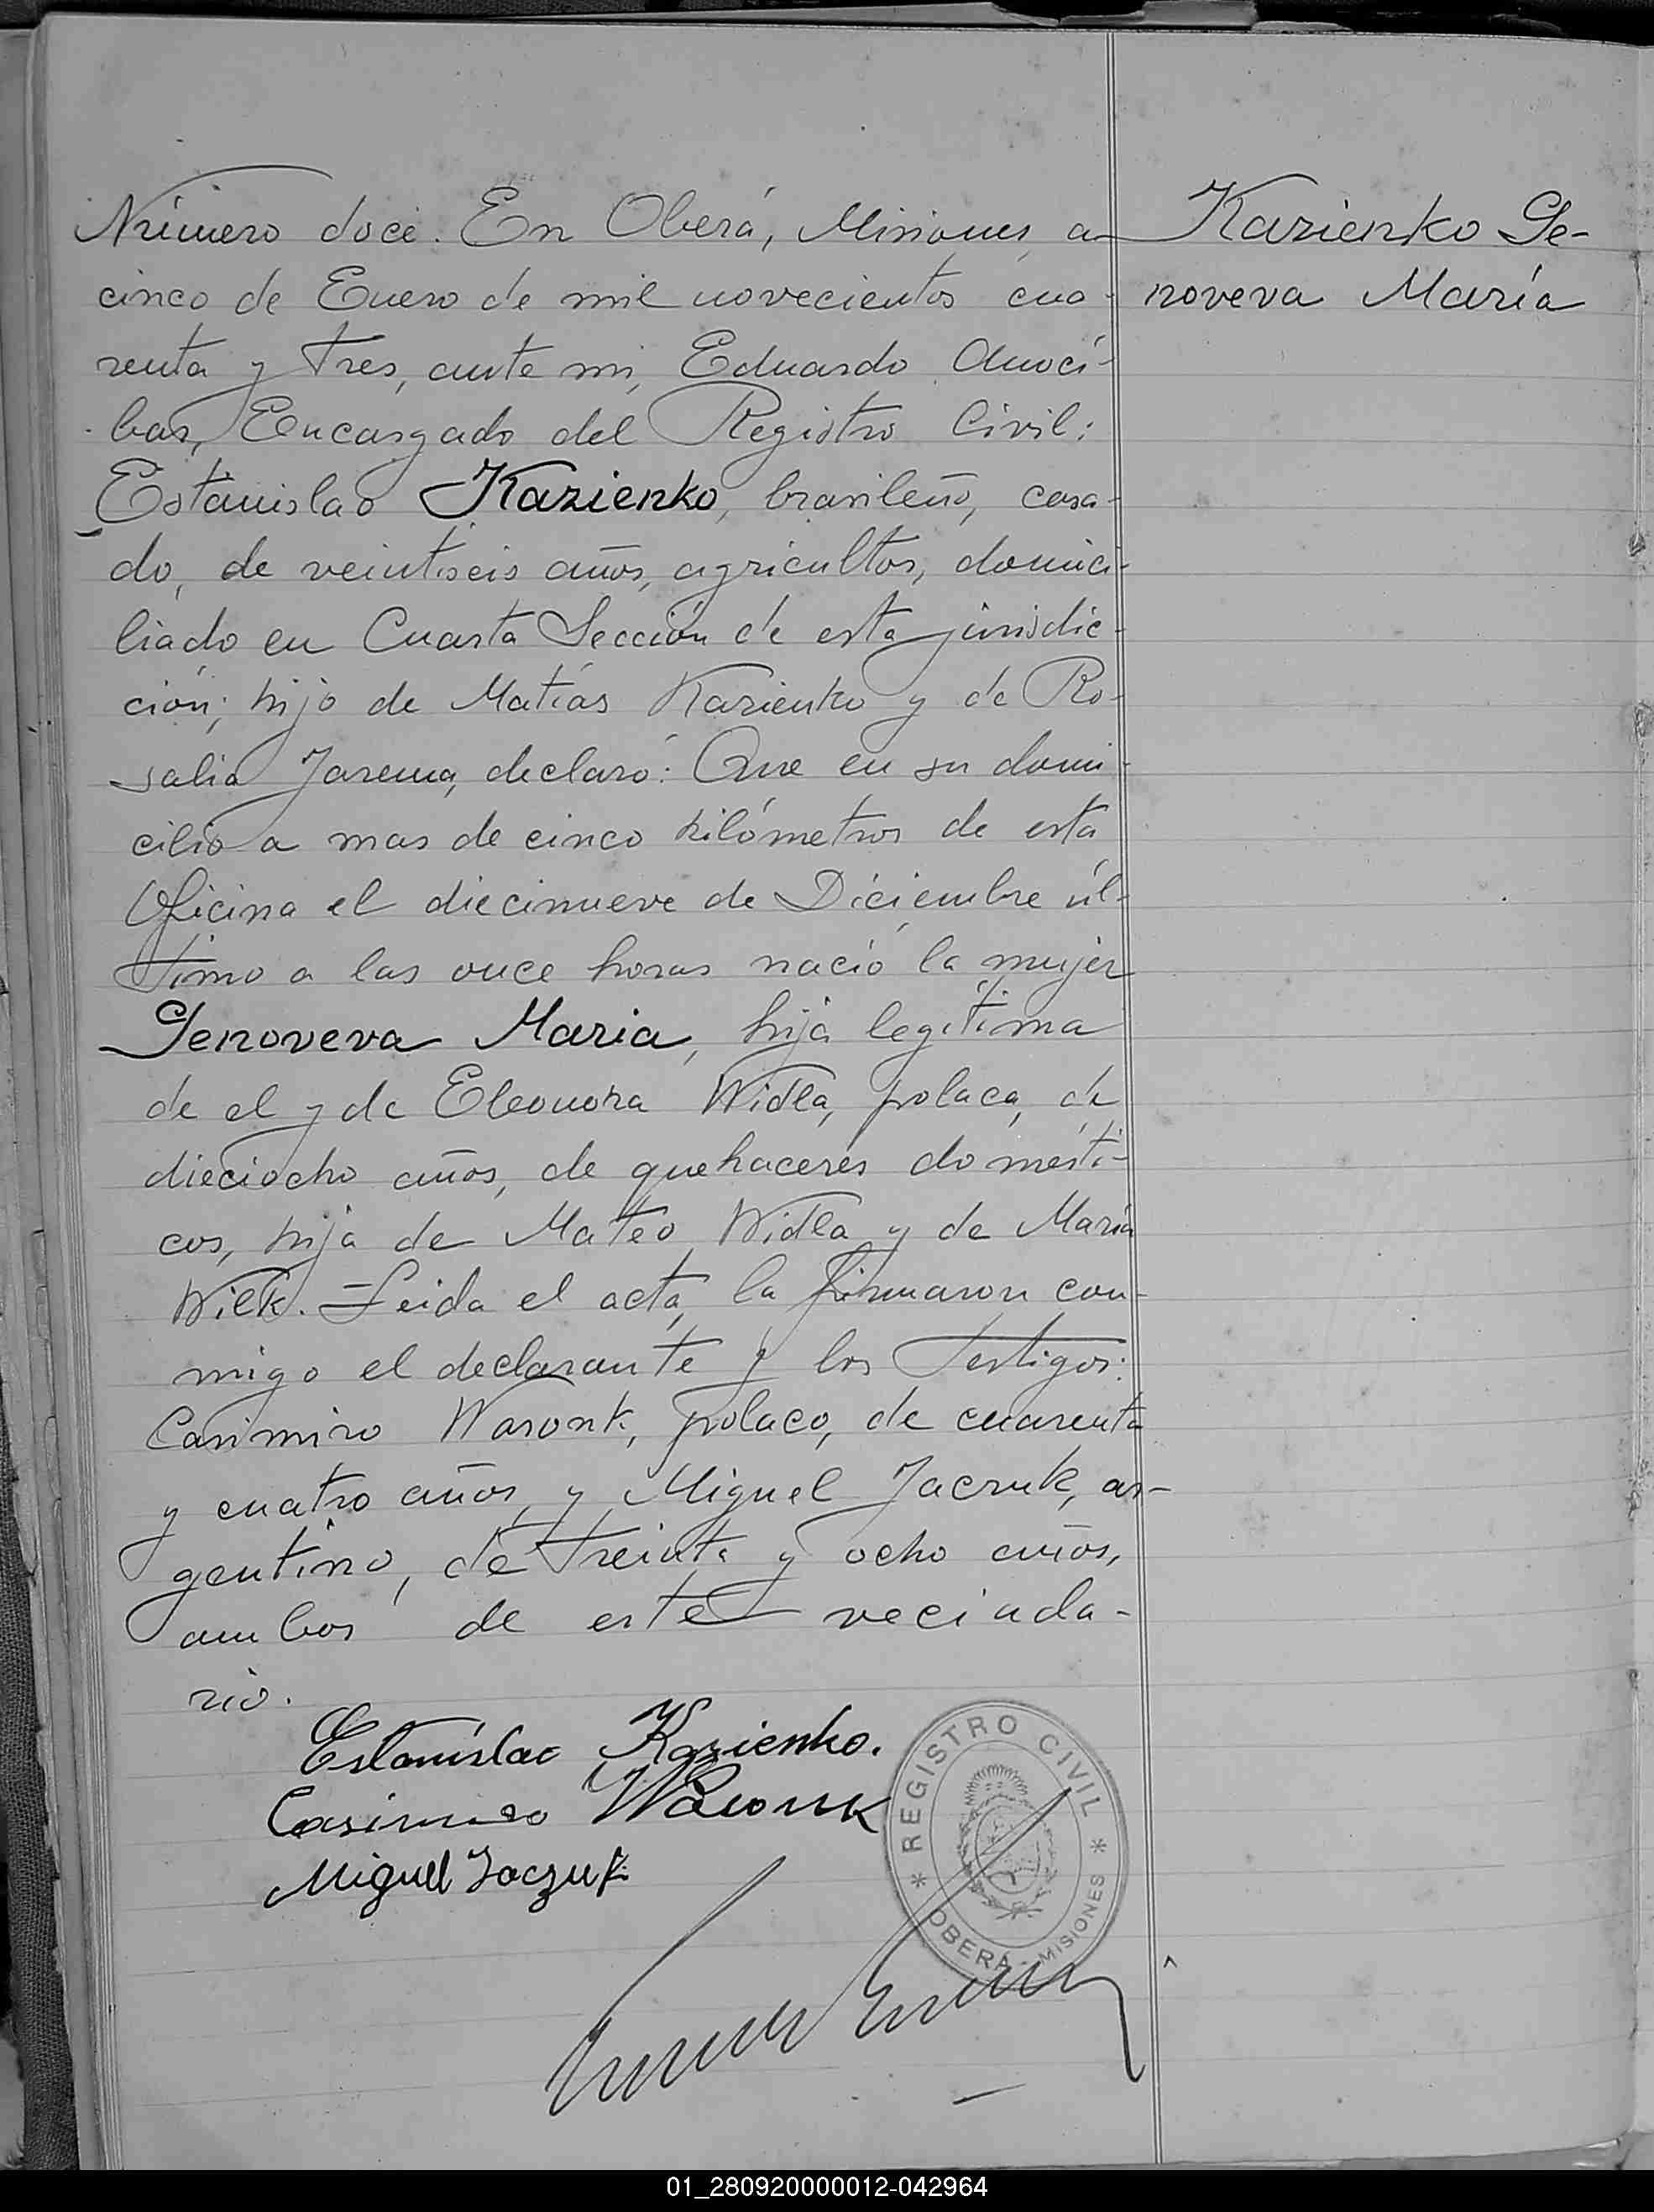 Número doce. En Oberá, Misiones, a
cinco de Enero de mil novecientos cua-
renta y tres, ante mi, Eduardo Anocí-
bar, Encargado del Registro Civil:
Estanislao Kazienko, brasileño, casa-
do, de veintiseis años, agricultor, domici-
liado en Cuarta Sección de esta jurisdic-
ción; hijo de Matías Kazienko y de Ro-
salia Jarema, declaró: Que en su domi-
cilio a mas de cinco kilómetros de esta
Oficina el diecinueve de Diciembre úl-
timo a las once horas nació la mujer
Genoveva Maria, hija legítima
de el y de Eleonora Widla, polaca, de
dieciocho años, de quehaceres domésti-
cos, hija de Mateo Widla y de María
Wilk. Leida el acta, la firmaron con-
migo el declarante y los testigos:
Casimiro Woronk, polaco, de cuarenta
y cuatro años, y Miguel Jaczuk, ar-
gentino, de treinta y ocho años,
ambos de este vecinda-
rio.
Kazienko Ge-
noveva María
Estanislao Kazienko.
Casimiro Woronk
Miguel Jaczuk
* REGISTRO CIVIL *
OBERÁ - MISIONES
01_280920000012-042964